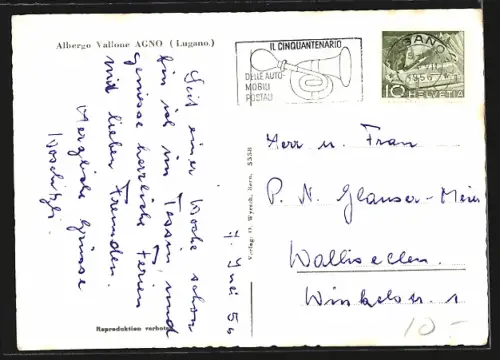 Albergo Vallone AGNO (Lugano.)
IL CINQUANTENARIO
DELLE AUTO-
MOBILI
POSTALI
LUGANO 1
1956
10 HELVETIA
7. Juli 56
Seit einer Woche schon
bin ich im Tessin, und
geniesse herrliche Ferien
mit lieben Freunden.
Herzliche Grüsse
Verlag: O. Wyrsch, Bern. 5358
Herr u. Frau
P. N. Glauser-Meier
Wallisellen.
Winkelstr. 1
10-
Reproduktion verboten